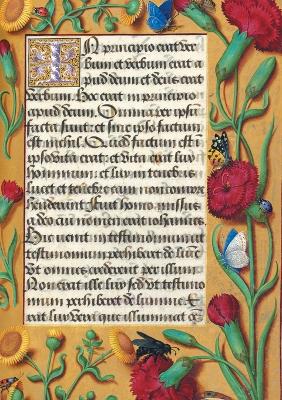 In principio erat ver
bum et verbum erat a
pud deum et deus erat
verbum. Hoc erat in principio
apud deum. Omnia per ipsū
facta sunt: et sine ipso factum
est nichil. Quod factum est
in ipso vita erat: et vita erat lux
hominum: et lux in tenebris
lucet et tenebre eam non com
prehenderunt. Fuit homo missus
a deo cui nomen erat iohannes.
Hic venit in testimonium ut
testimonium perhiberet de lumine.
Ut omnes crederent per illum.
Non erat ille lux sed ut testimo
nium perhiberet de lumine.
Erat lux vera que illuminat o